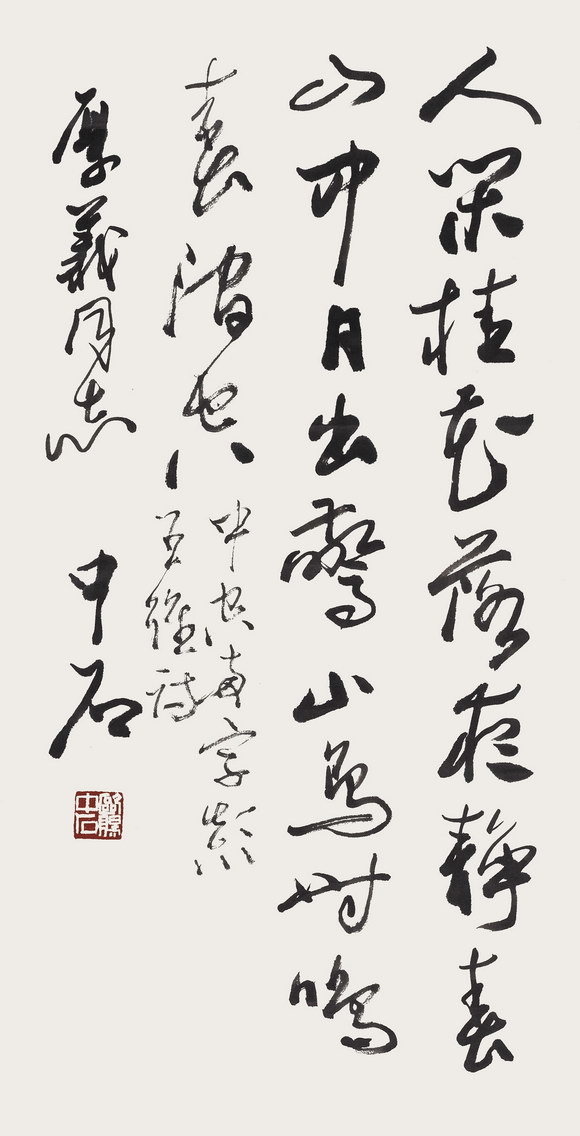 人閑桂花落夜静春
山中月出驚山鳥時鳴
春澗空
中空两字顛
王維詩
厚義同志
中石
歐陽中石